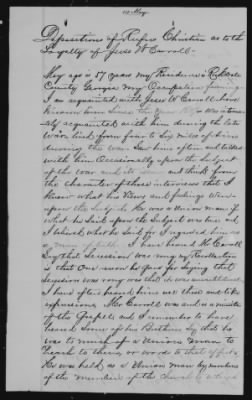 Deposition of Rufus Christian as to the
Loyalty of Jesse W Carroll
My age is 57 years my Residence is
County Georgia My Occupation farming
I am acquainted with Jesse W Carroll have
known him since I was
acquainted with him during the late
War lived from four to Six miles of him
during the war. Saw him often and talked
with him Occasionally upon the Subject
of the War and its and think from
the character of those interviews that I
know what his Views and feelings were
upon the Subject. He was a Union man if
what he Said upon the Subject was true and
I believe what he Said for I regarded him as
a man of truth. I have heard Mr Carroll
Say that Secession was wrong my Recollection
is that One reason he gave for Saying that
Secession was wrong was that it was
I have often heard him use these and like
expressions. Mr Carroll was and is a minister
of the Gospel and I remember to have
heard Some of his Brethren Say that he
was to much of a Union man to
Preach to them, or words to that effect.
He was held as a Union man by members
of the of the Church